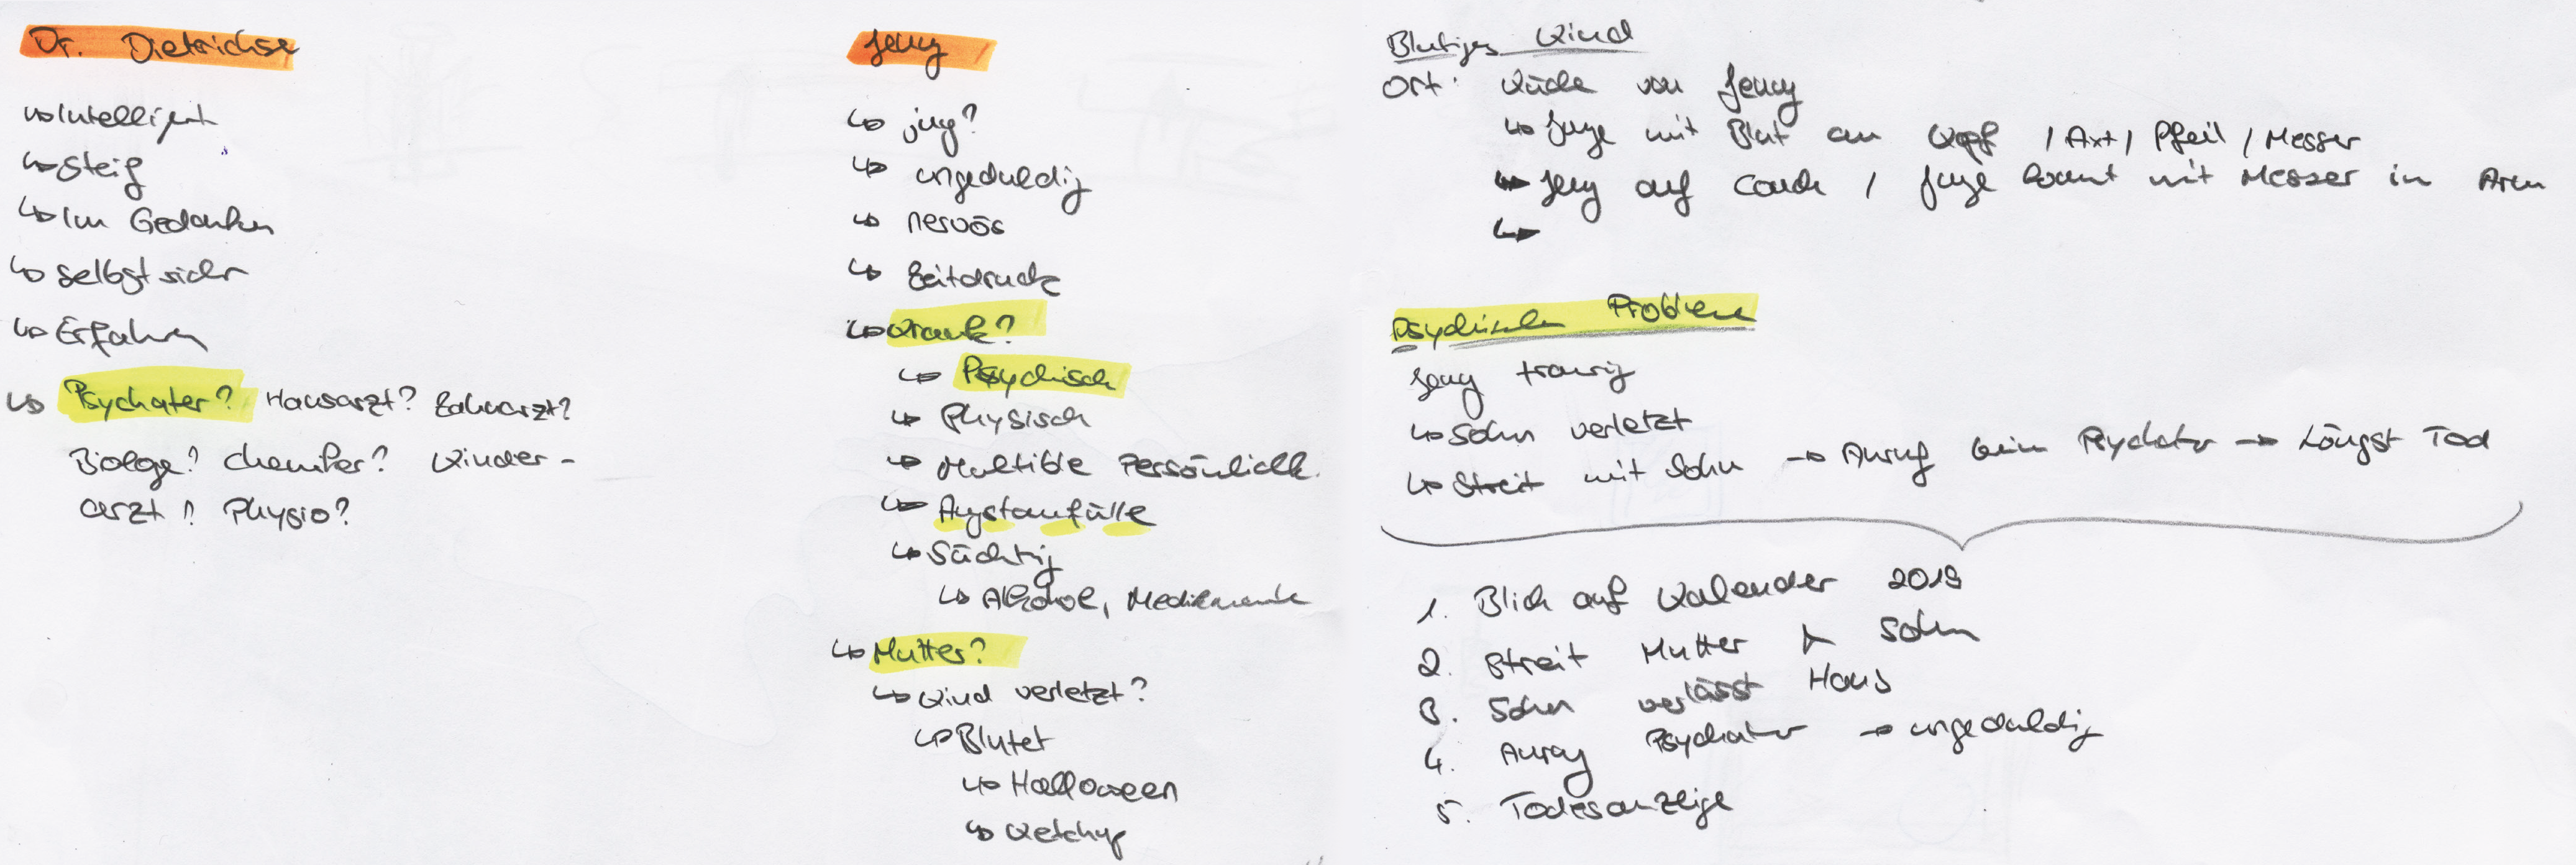 Dr. Dietrichse
↳ Intelligent
↳ Steif
↳ Im Gedanken
↳ selbstsicher
↳ Erfahren
↳ Psychater? Hausarzt? Zahnarzt?
Biologe? Chemiker? Kinder-
arzt? Physio?
Jeny
↳ jung?
↳ ungeduldig
↳ nervös
↳ Zeitdruck
↳ Krank?
↳ Psychisch
↳ Physisch
↳ Multible Persönlichk.
↳ Angstanfälle
↳ Süchtig
↳ Alkohol, Medikamente
↳ Mutter?
↳ Kind verletzt?
↳ Blutet
↳ Halloween
↳ Ketchup
Blutiges Kind
Ort: Küche von Jenny
↳ Junge mit Blut am Kopf / Axt / Pfeil / Messer
↳ Jeny auf Couch / Junge kommt mit Messer in Arm
↳
Psychische Probleme
Jeny traurig
↳ Sohn verletzt
↳ Streit mit Sohn → Anruf beim Psychater → Längst Tod
1. Blick auf Kalender 2019
2. Streit Mutter & Sohn
3. Sohn verlässt Haus
4. Anruf Psychater → ungeduldig
5. Todesanzeige